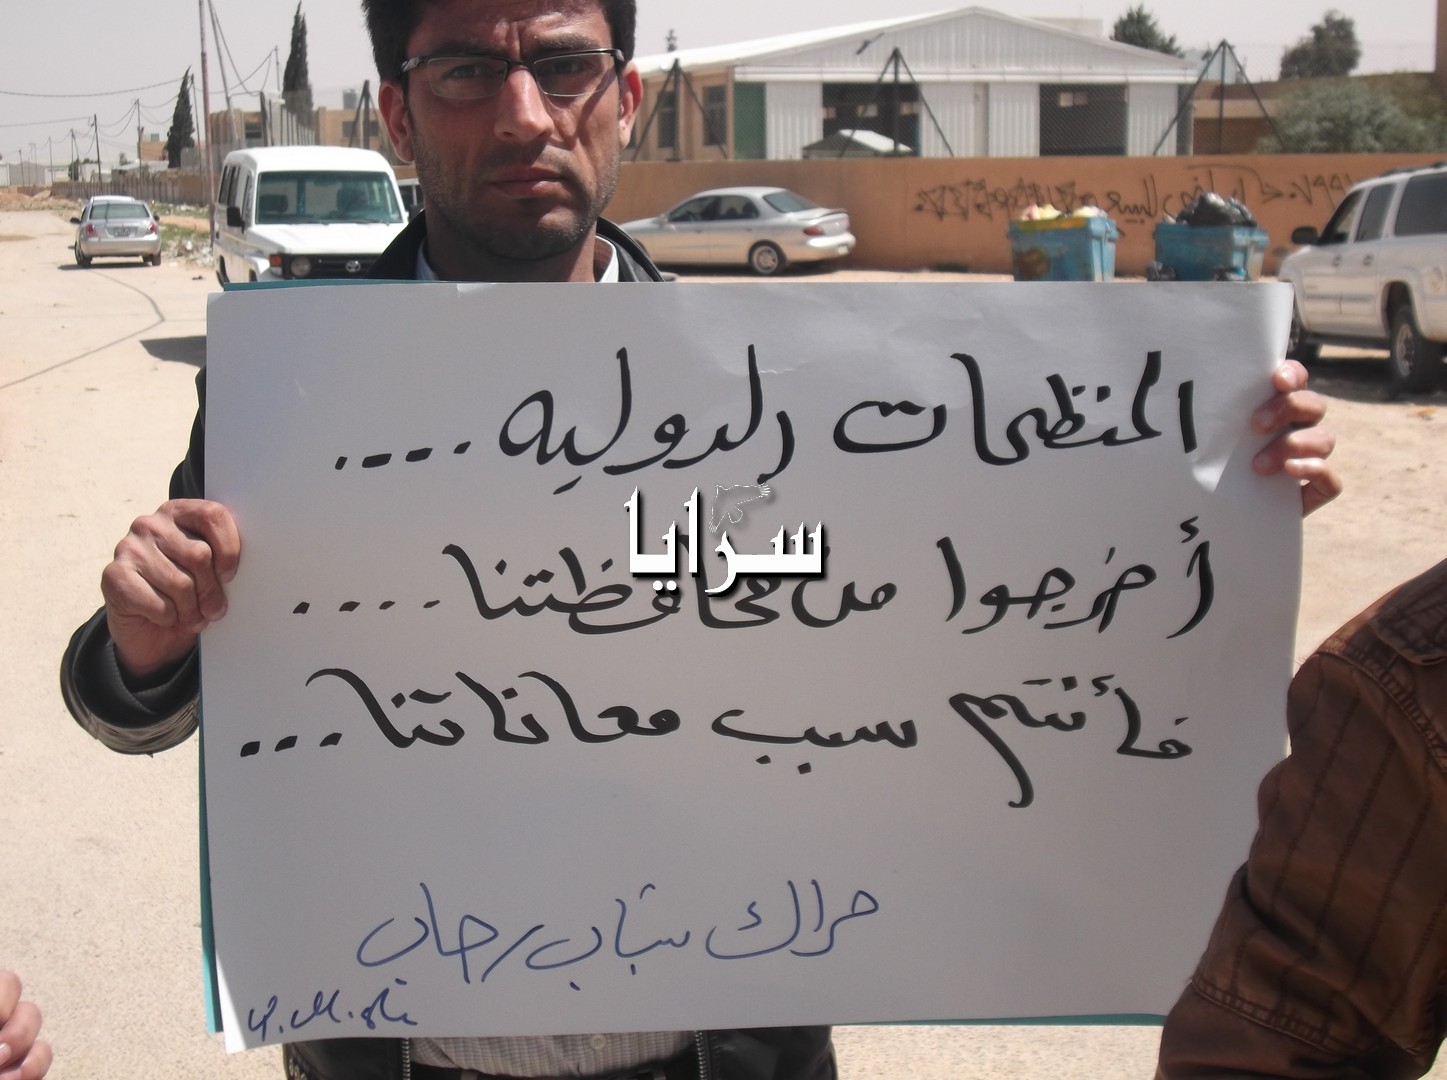 المنظمات الدوليه ....
أخرجوا من محافظتنا ....
فأنتم سبب معاناتنا ...
حراك شباب رحاب
سرايا